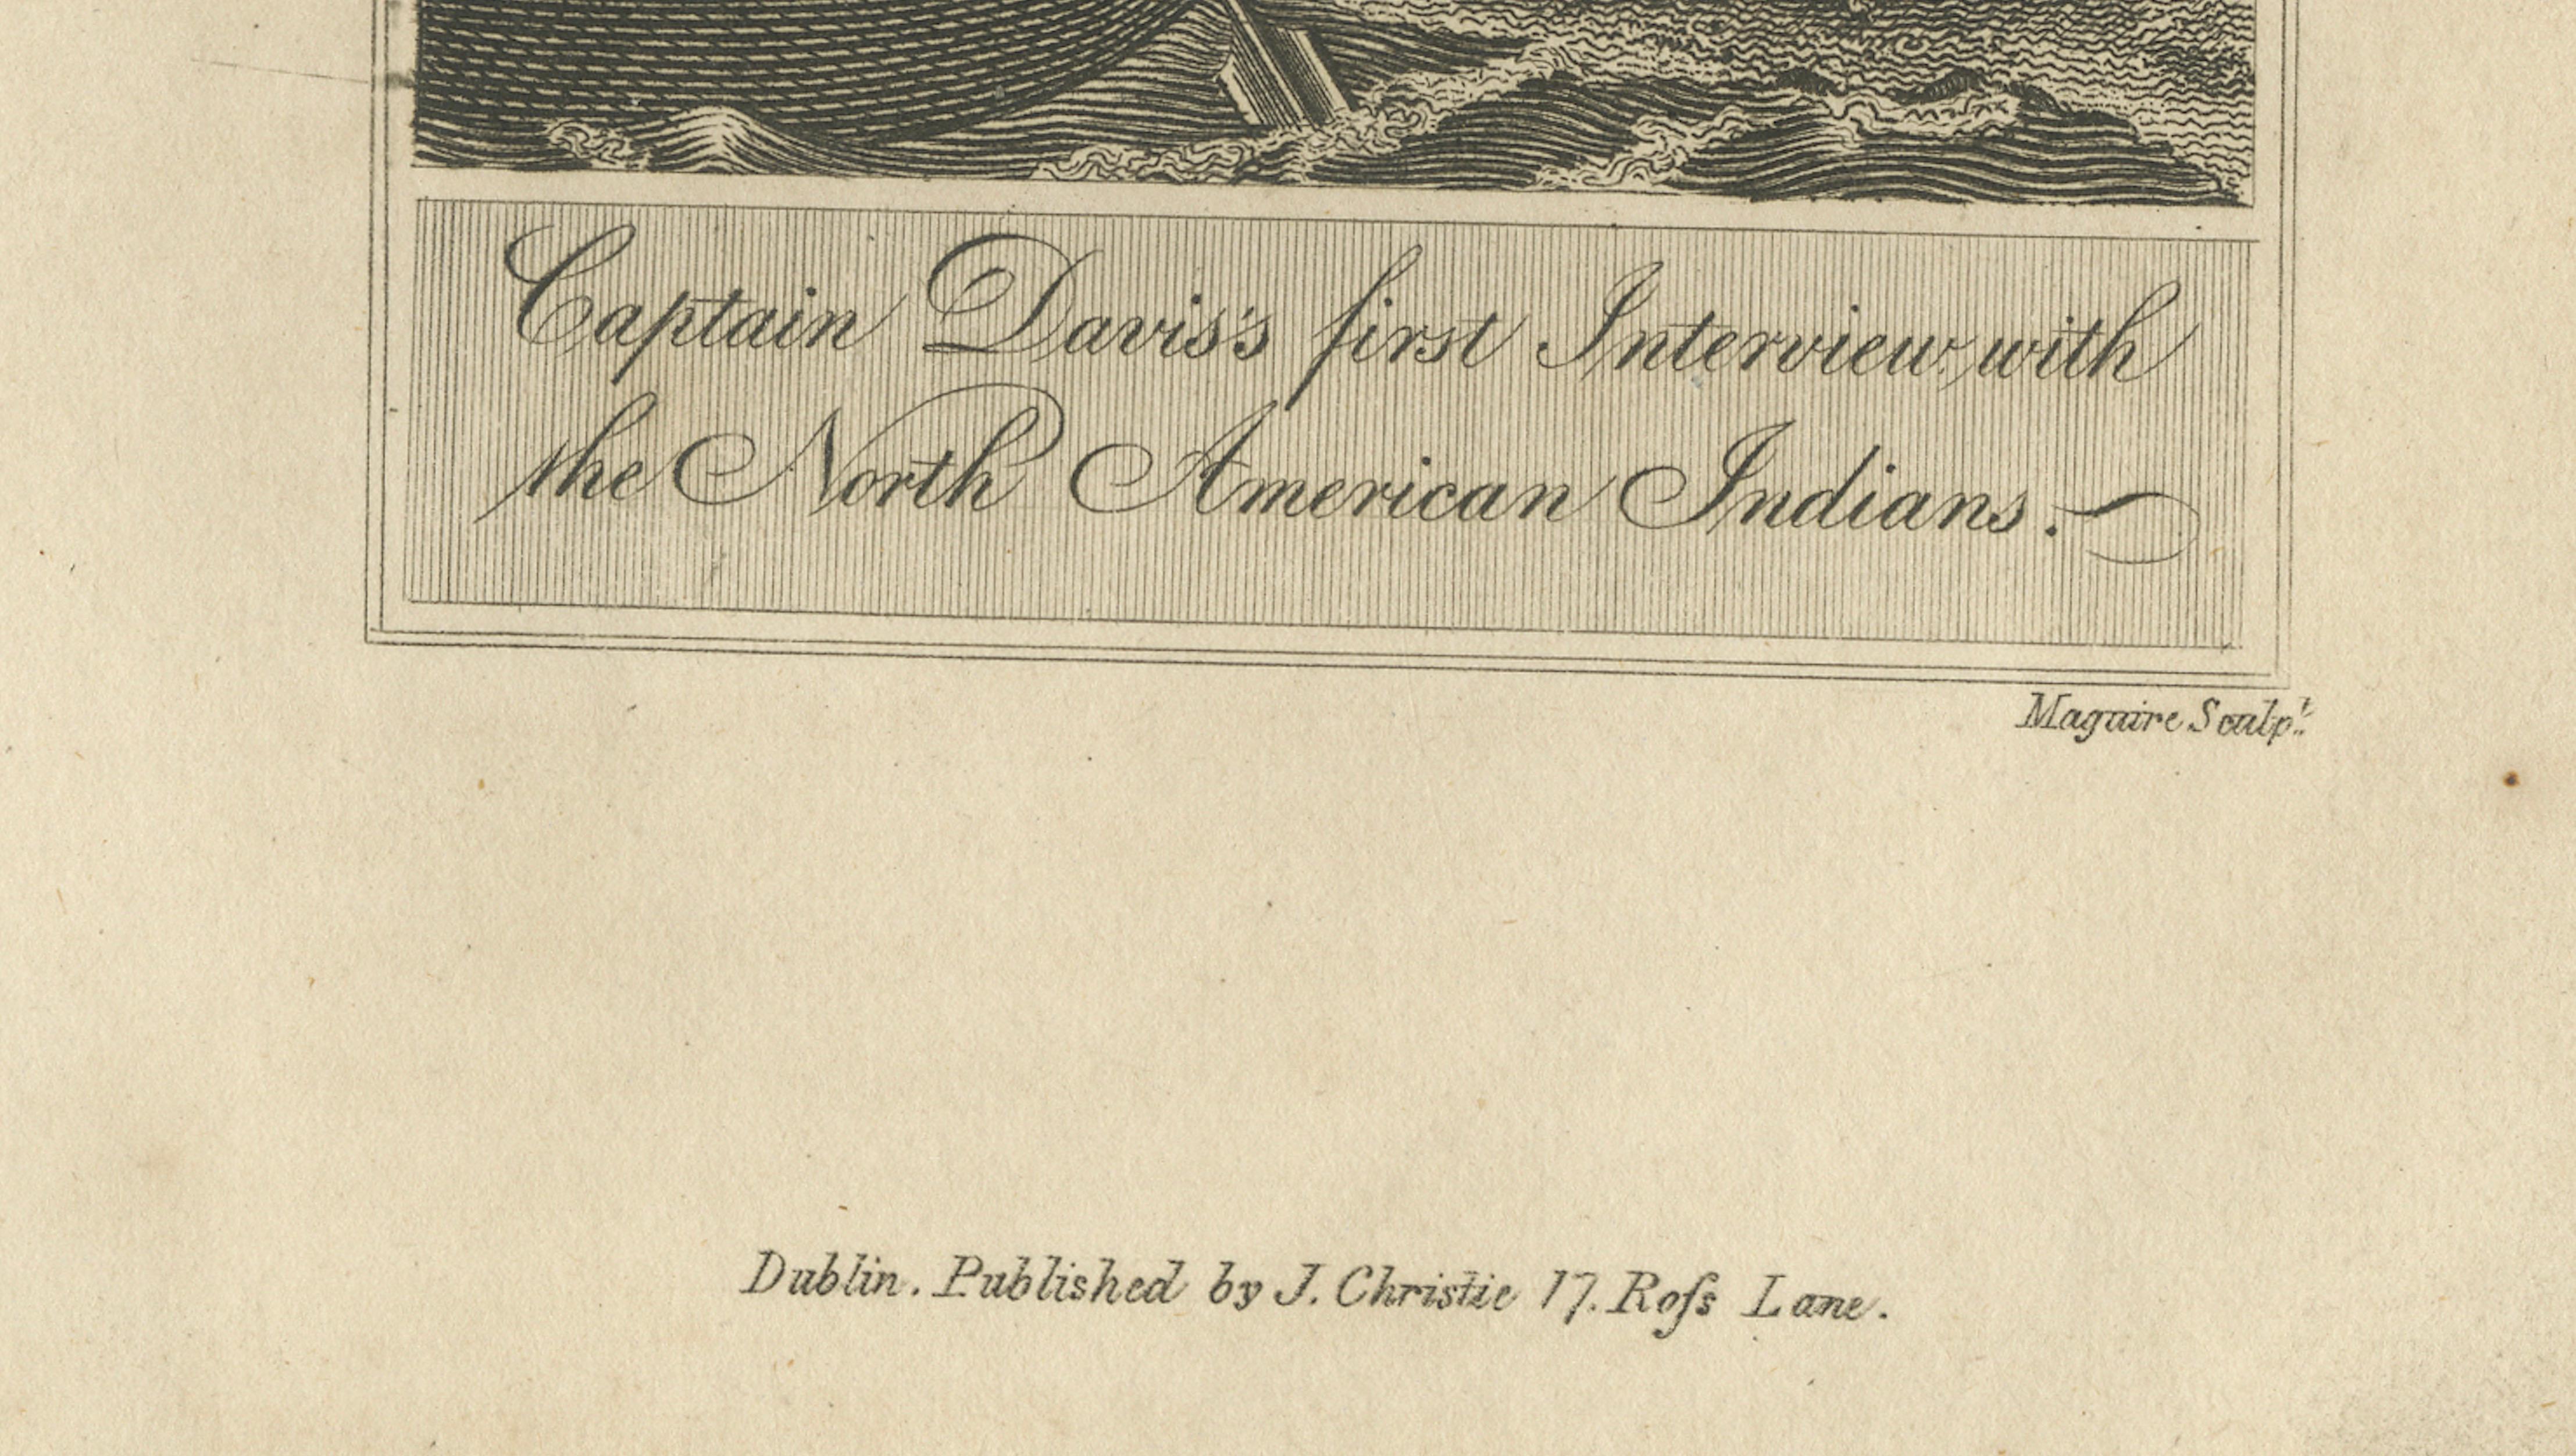 Captain Davis's first Interview with
the North American Indians.
Maguire Sculpt.
Dublin. Published by J. Christie 17. Roſs Lane.